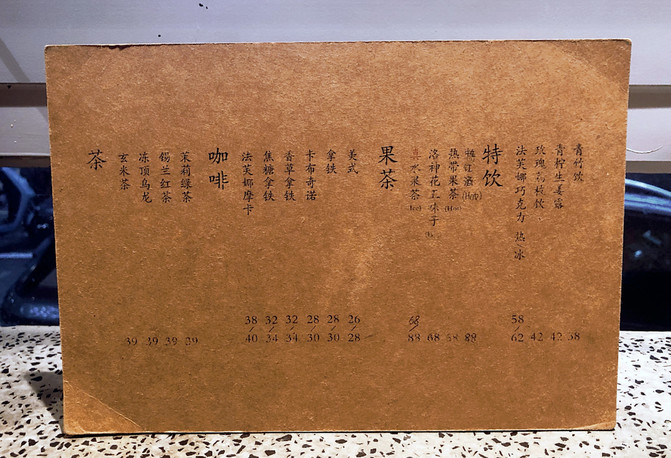 茶
玄米茶 39
冻顶乌龙 39
锡兰红茶 39
茉莉绿茶 39
咖啡
法芙娜摩卡 38/40
焦糖拿铁 32/34
香草拿铁 32/34
卡布奇诺 28/30
拿铁 28/30
美式 26/28
果茶
水果茶 68/88
洛神花五味子 68
热带果茶 58
红酒 88
特饮
法芙娜巧克力 热/冰 58/62
玫瑰 42
青柠生姜露 42
青竹饮